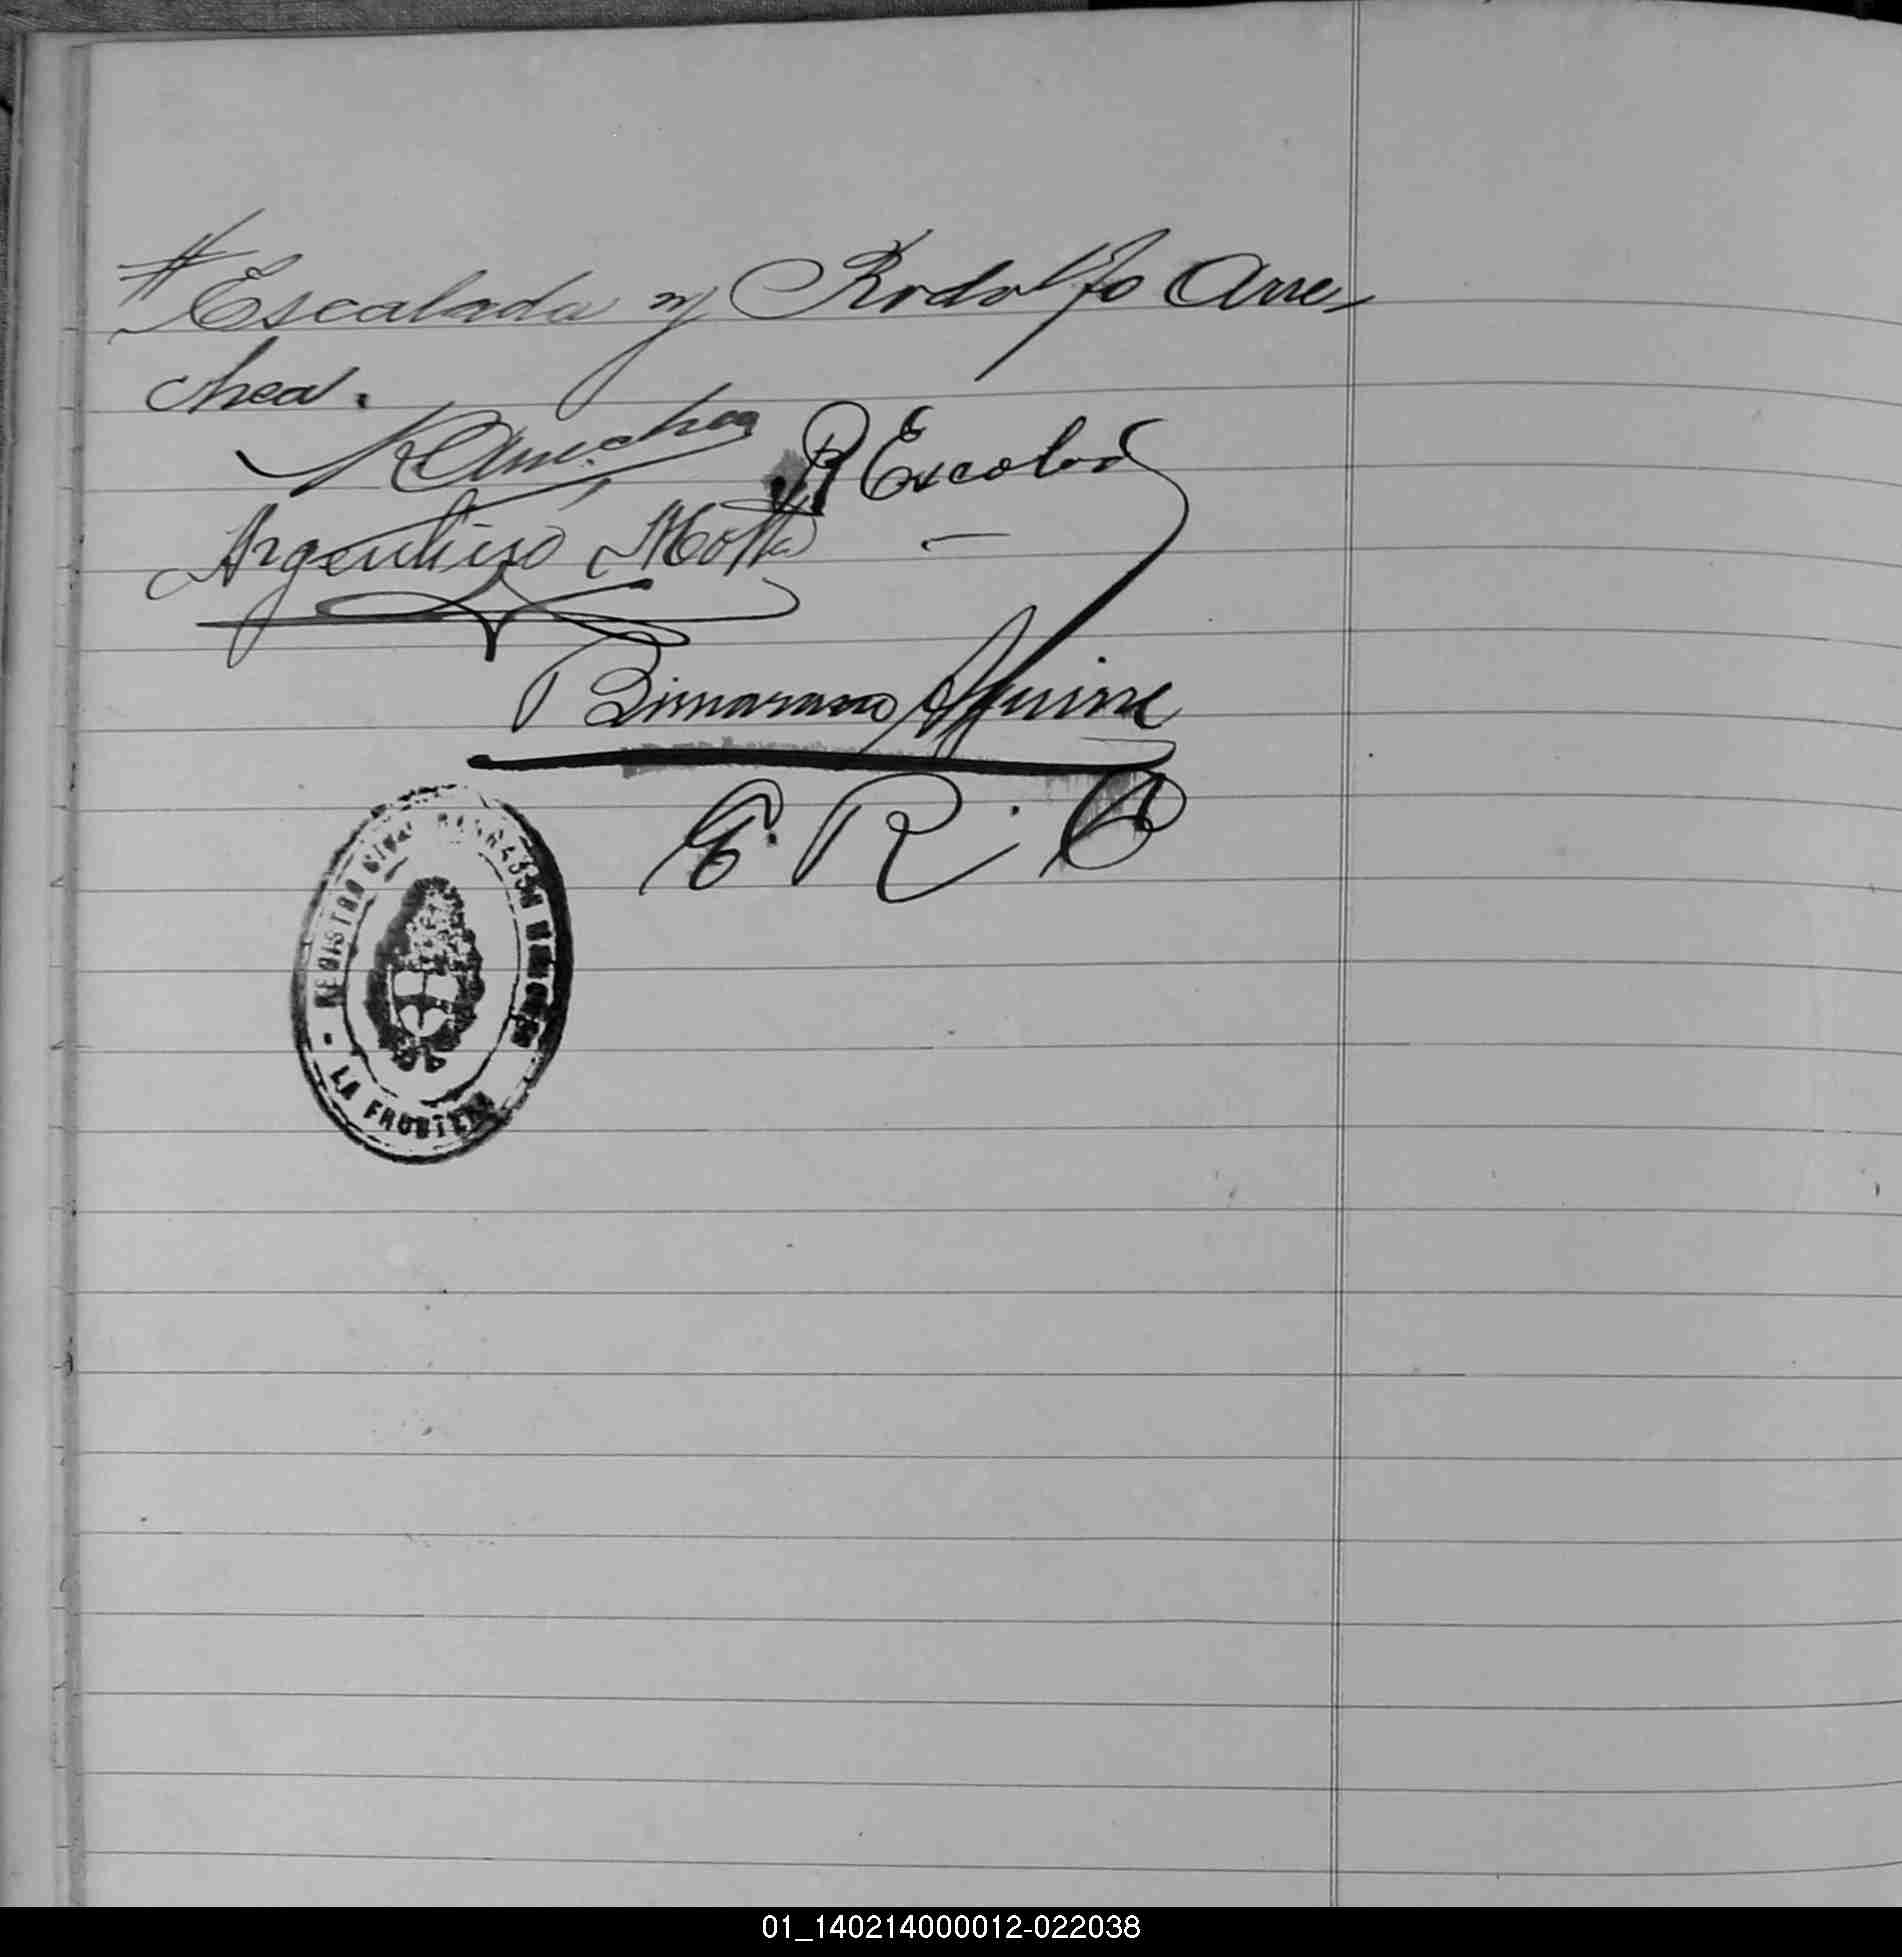 # Escalada y Rodolfo Arre
chea.
R Arrechea R Escalad
Argentino Motta
Aguirre
E. R. C
REGISTRO CIVIL
- LA FRONTERA
01_140214000012-022038